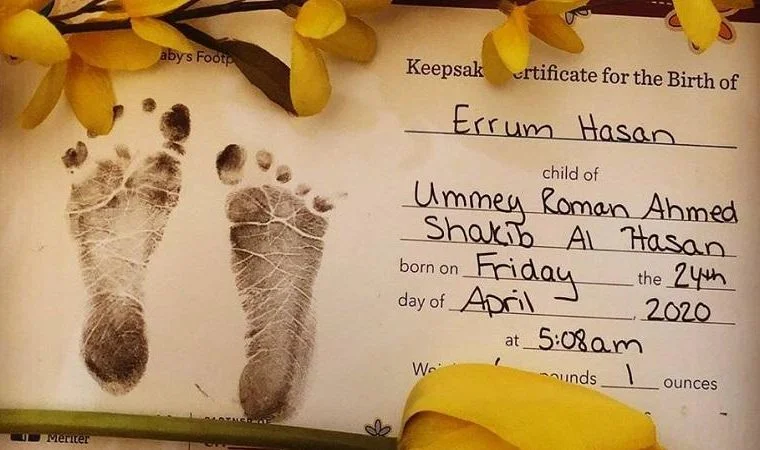 Baby's Footp
Keepsak ertificate for the Birth of
Errum Hasan
child of
Ummey Roman Ahmed
Shakib Al Hasan
born on Friday the 24th
day of April, 2020
at 5:08am
ounds 1 ounces
Meriter